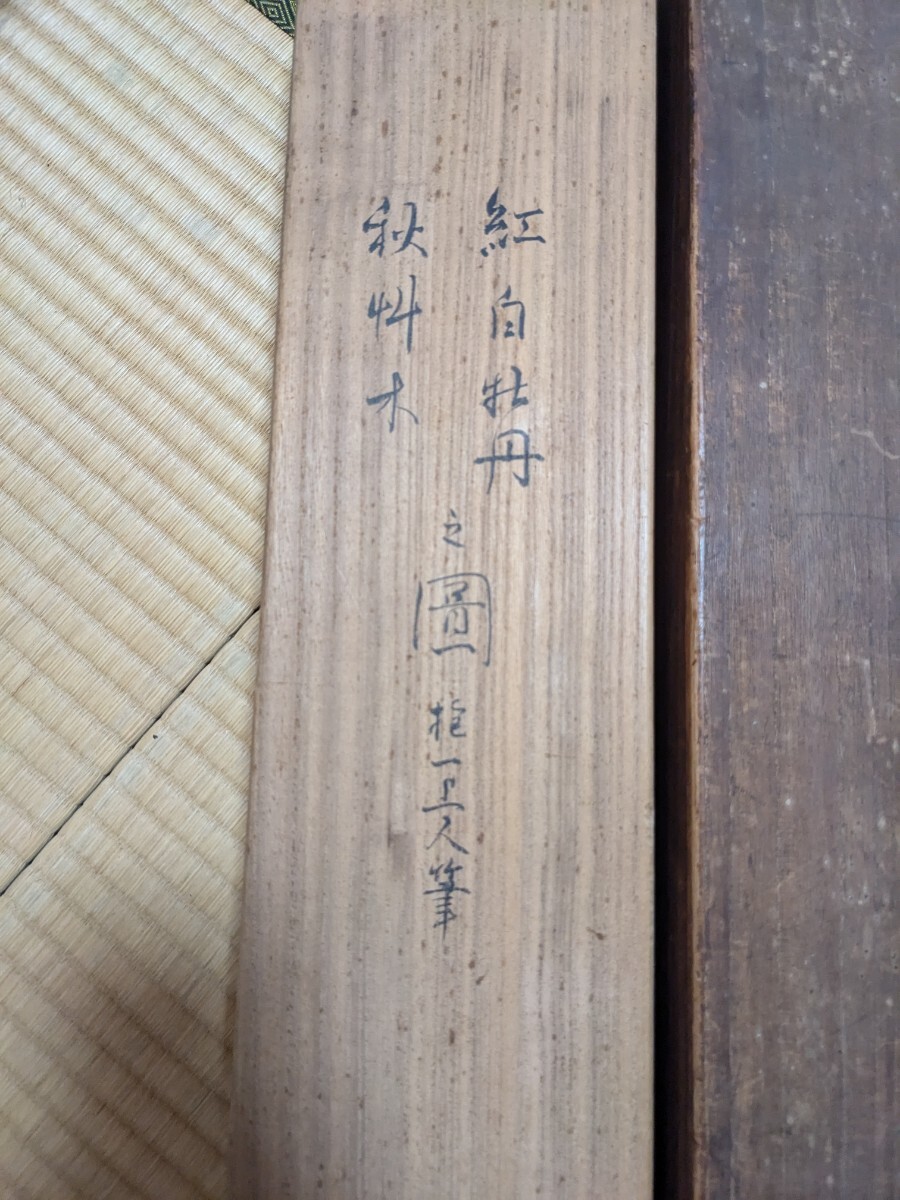 紅白牡丹
秋艸木
之圖
抱一上人筆